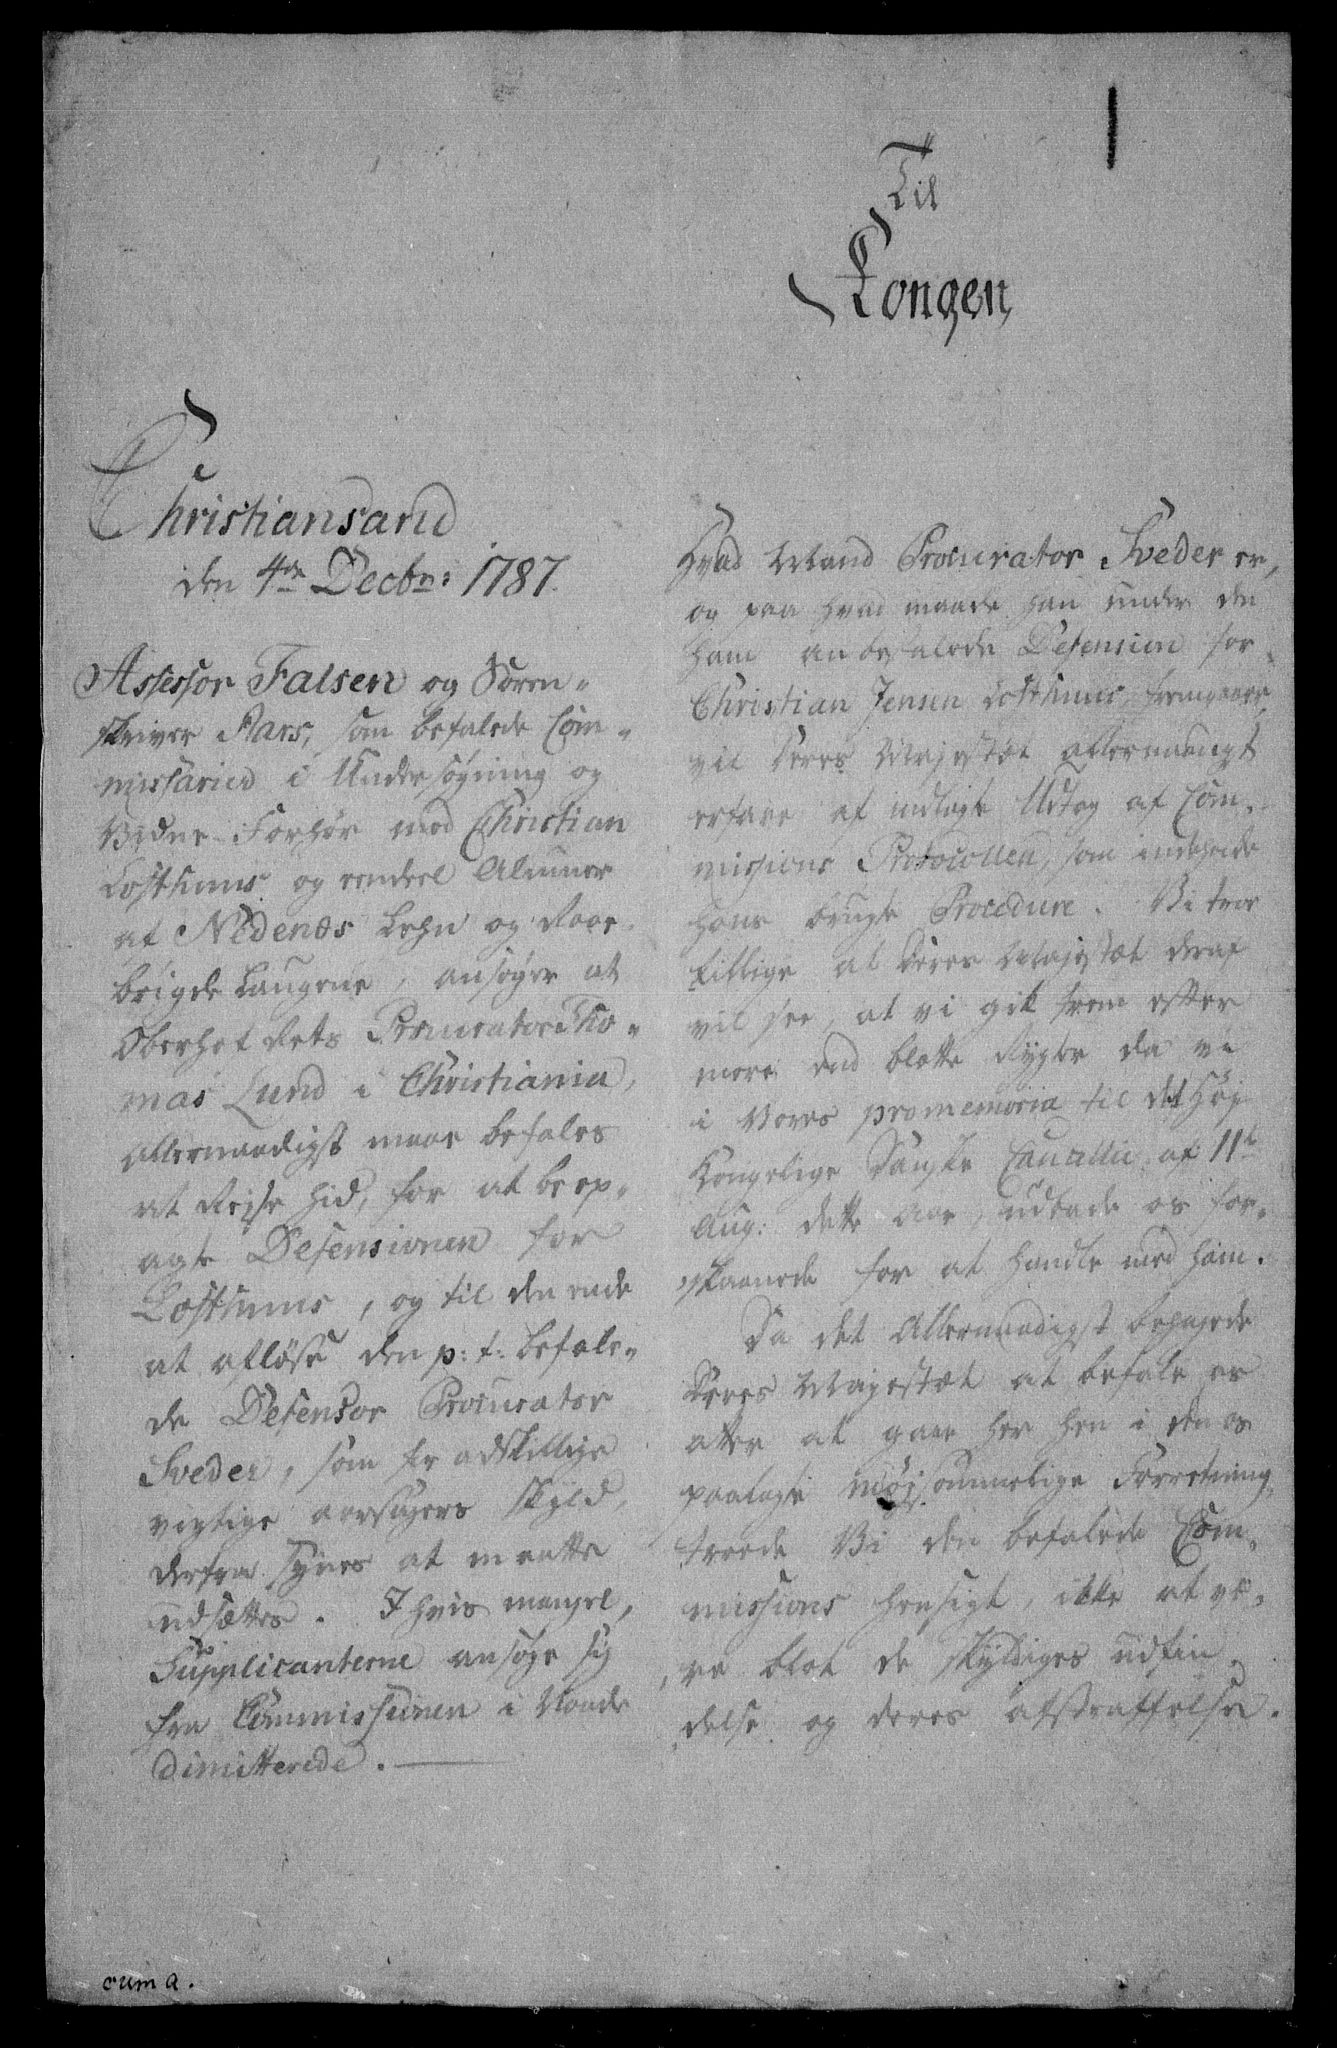 Til
Kongen
Christiansand
den 4de Decbr: 1787.
Assessor Falsen og Soren-
skriver Aars, som befalede Com-
missarier i Undersøgning og
Vidne-Forhør mod Christian
Lofthuus og endeel Almuer
af Nedenæs Lehn og Raae-
bøigde Laugene, ansøger at
Oberhof Rets Procurator Tho-
mas Lund i Christiania,
allernaadigst maae befales
at Rejse hid, for at beop-
agte Defensionen for
Lofthuus, og til den ende
at afløse den p: t: befale-
de Defensor Procurator
Sveder, som for adskillige
vigtige aarsagers skyld,
derfra synes at maatte
udsættes. I hvis mangel,
Supplicanterne ansøge sig
fra Commissionen i Naade
dimitterede.
cum a.
Hvad Mand Procurator Sveder er,
og paa hvad maade han under den
ham anbefalede Defension for
Christian Jensen Lofthuus, fremgaaer,
vil Deres Majestæt allernaadigst
erfare af indlagte Udtog af Com-
missions Protocollen, som indeholde
hans brugte Procedure. Vi troe
tillige at Deres Majestæt deraf
vil see, at vi gik frem efter
mere end blotte Rygter da vi
i Vores promemoria til det Høj
Kongelige Danske Cancellie af 11te
Aug: dette Aar, udbade os for-
skaanede for at handle med ham.
Da det Allernaadigst behagede
Deres Majestæt at befale os
atter at gaae her hen i den os
paalagte møjsommelige Forretning,
troede Vi den befalede Com-
missions hensigt, ikke at væ-
re blot de skyldiges udfin-
delse og deres afstraffelse.